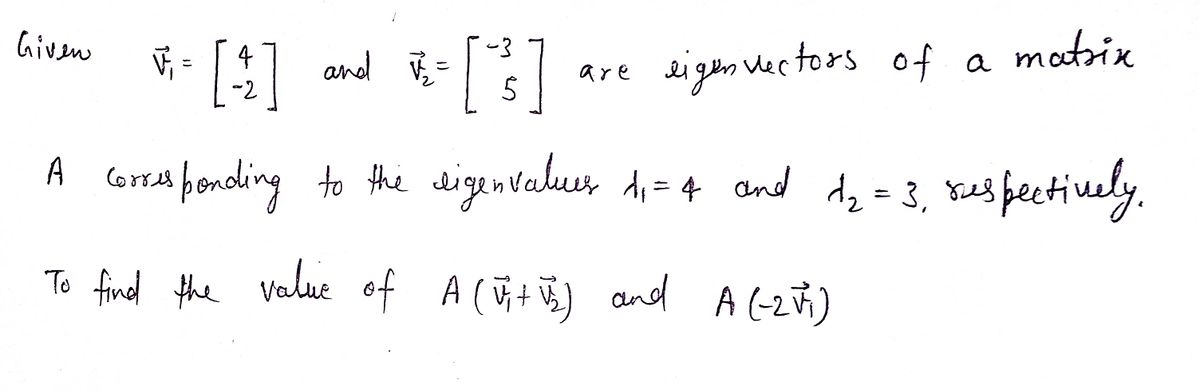 Given v⃗₁ = [4 -2] and v⃗₂ = [-3 5] are eigenvectors of a matrix
A corresponding to the eigenvalues λ₁ = 4 and λ₂ = 3, respectively.
To find the value of A (v⃗₁ + v⃗₂) and A (-2v⃗₁)